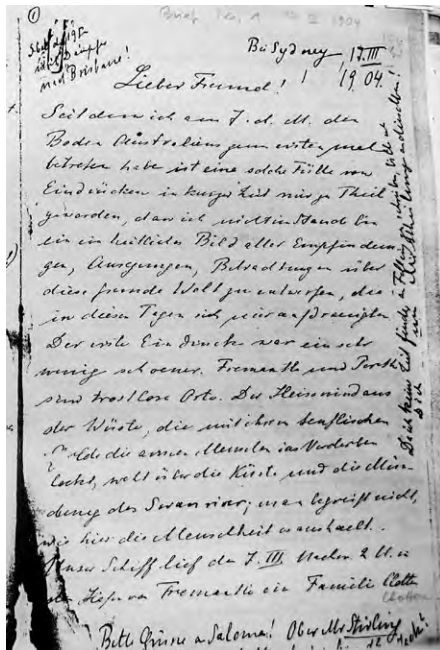 ①
Brief No. 1 III 1904
Bei Sydney, 17.III
1904.
mit Dampfer
nach Brisbane!
Lieber Freund!
Seitdem ich am 7. d. M. den
Boden Australiens zum ersten mal
betreten habe ist eine solche Fülle von
Eindrücken in kurzer Zeit mir zu Theil
geworden, dass ich nicht im Stande bin
ein einheitliches Bild aller Empfindun-
gen, Anregungen, Betrachtungen über
diese fremde Welt zu entwerfen, die
in diesen Tagen sich mir aufdrängten.
Der erste Eindruck war ein sehr
wenig schoener. Fremantle und Perth
sind trostlose Orte. Der Heisswind aus
der Wüste, die mit ihren teuflischen
die armen Menschen ins Verderben
lockt, weht über die Küste und die Mün-
dung des Swanriver; man begreift nicht,
wie hier die Menschheit es aushaelt.
Unser Schiff lief den 7. III. 2 U. in
den Hafen von Fremantle ein Familie Clotten
Bitte Grüsse an Salome! Ober Mr Stirling
Da ich keine Zeit finde, schreiben, bitte ich
Dich um